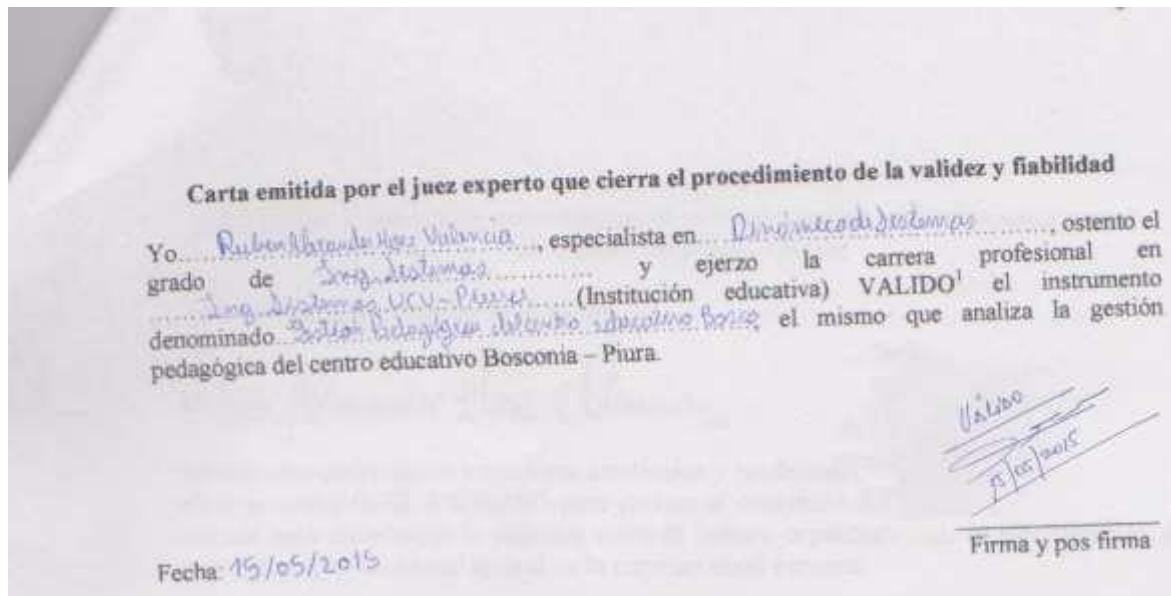 Carta emitida por el juez experto que cierra el procedimiento de la validez y fiabilidad
Yo....Ruben Alexander More Valencia...., especialista en....Dinámica de Sistemas...., ostento el
grado de ....Ing. Sistemas.... y ejerzo la carrera profesional en
......Ing. Sistemas UCV-Piura......(Institución educativa) VALIDO¹ el instrumento
denominado Gestión Pedagógica del centro educativo Bosco, el mismo que analiza la gestión
pedagógica del centro educativo Bosconia – Piura.
Válido
/05/2015
Firma y pos firma
Fecha: 15/05/2015